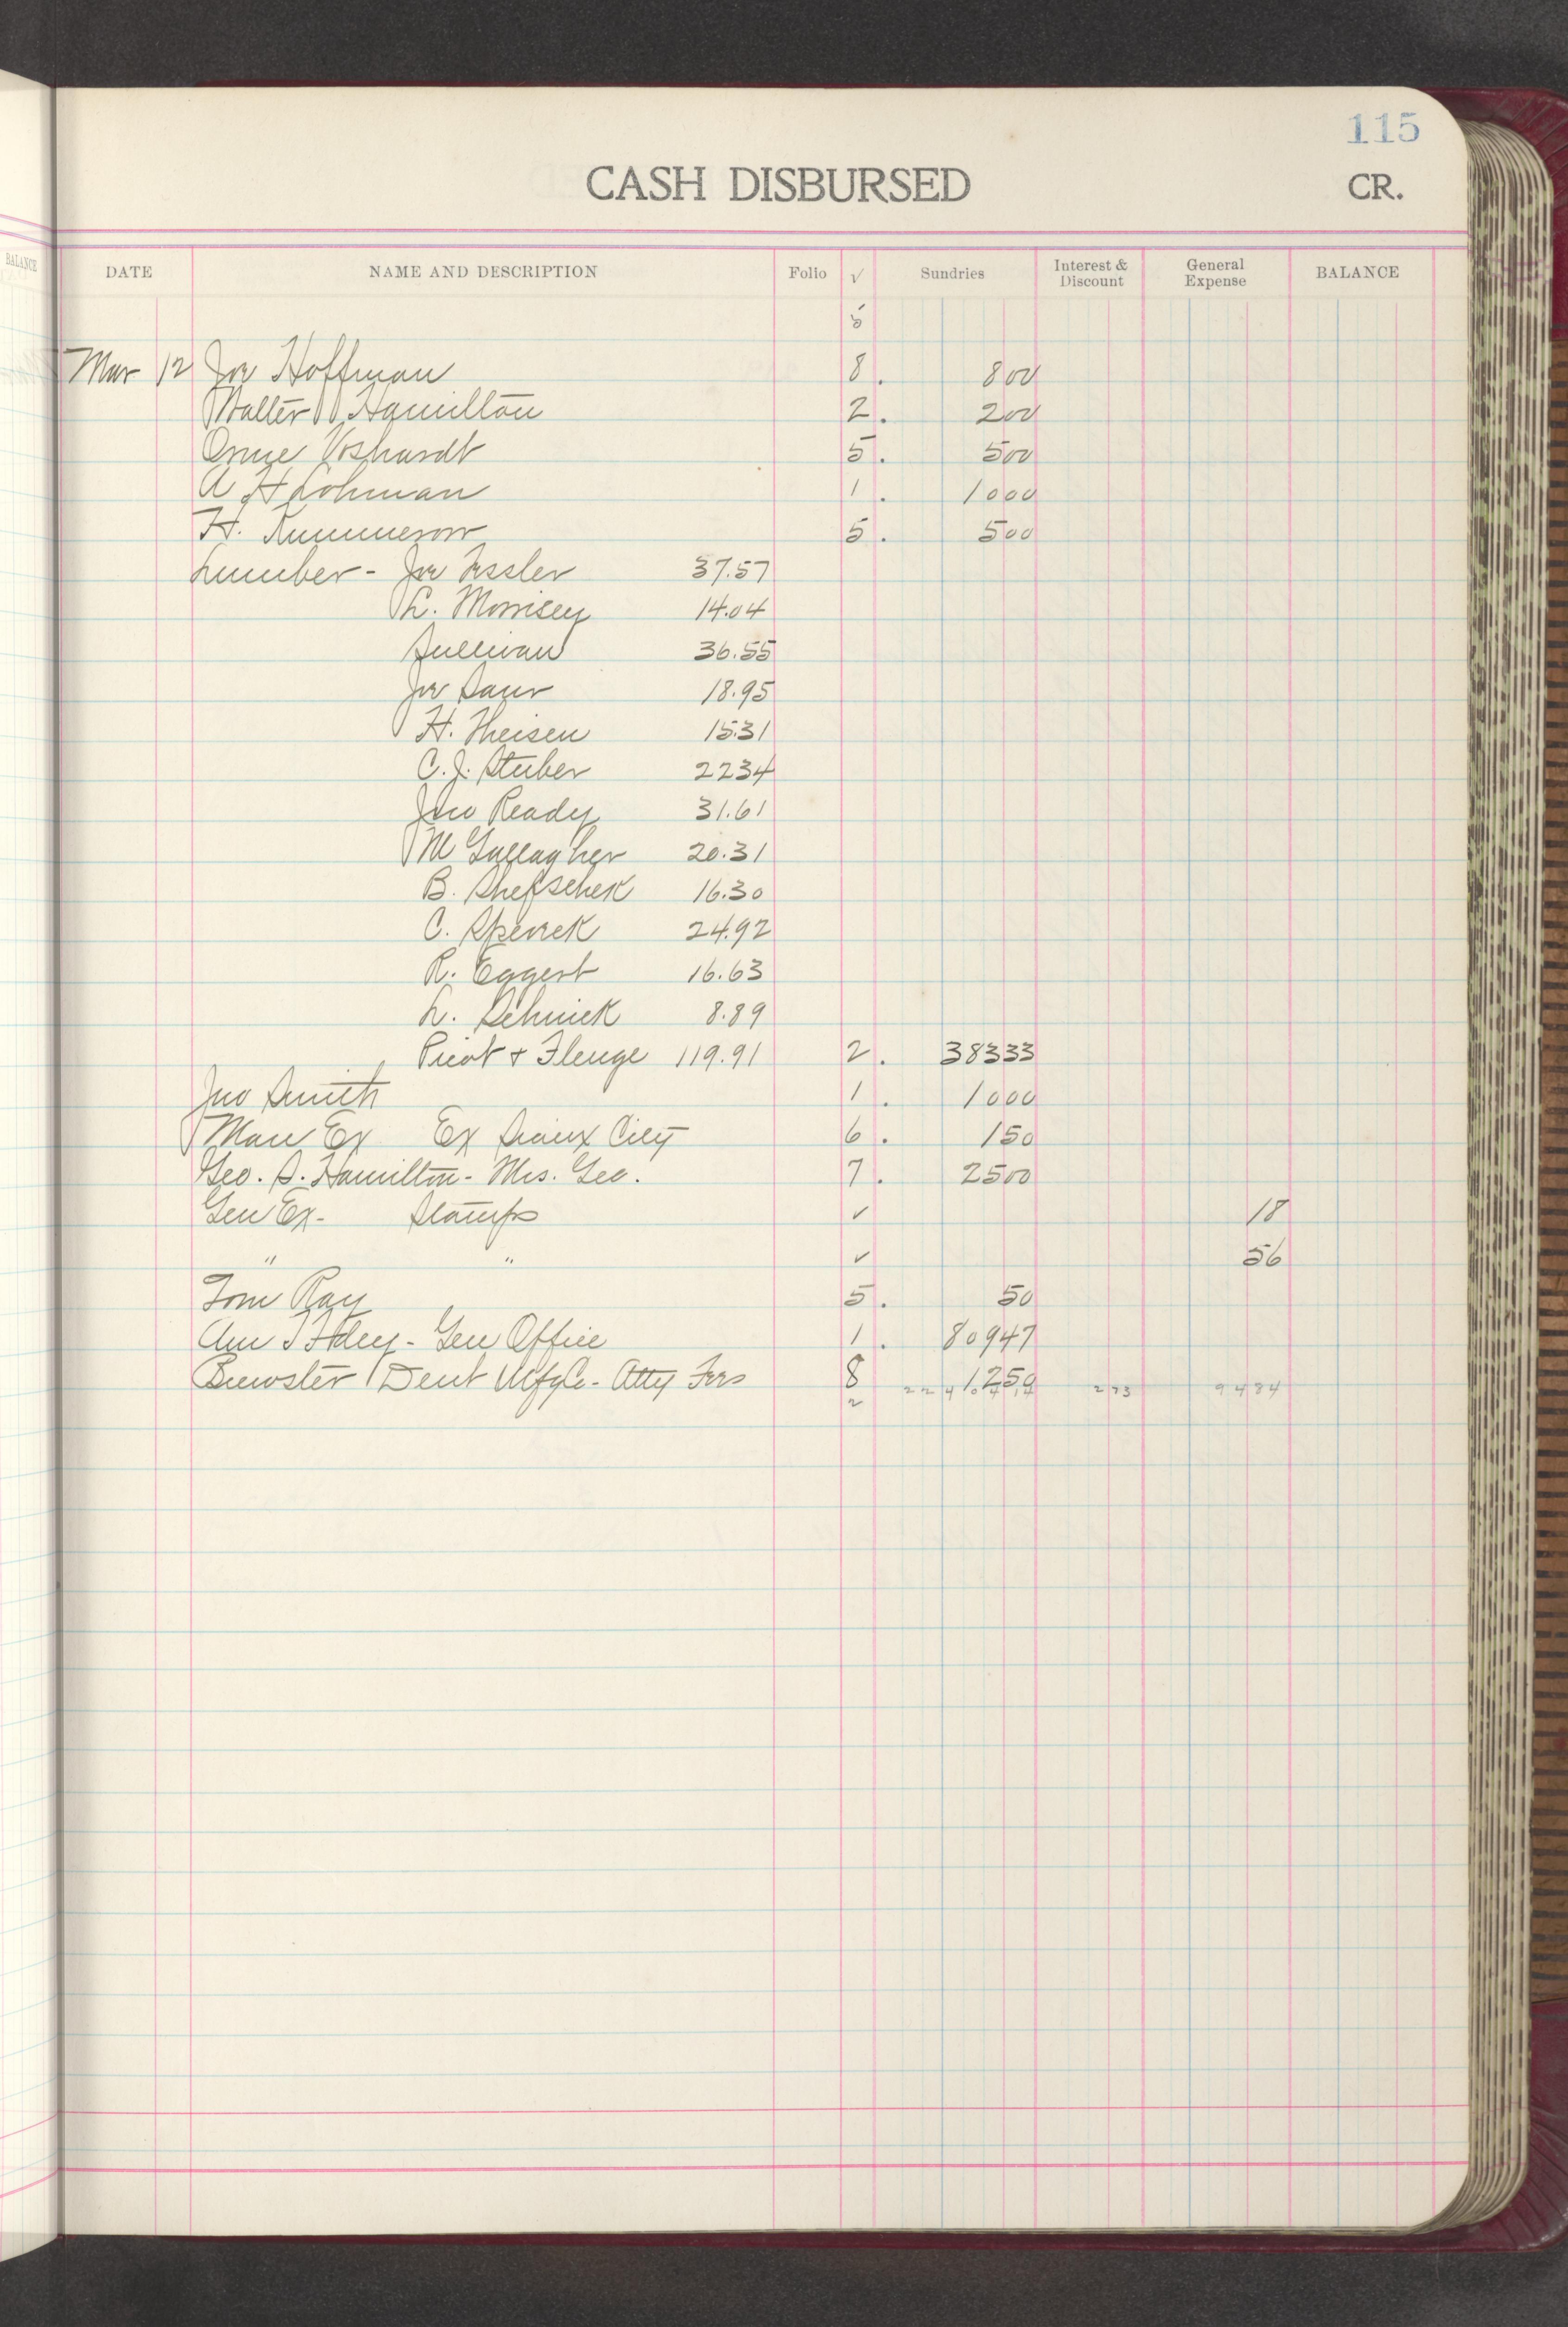 115
CASH DISBURSED CR.
BALANCE
DATE NAME AND DESCRIPTION Folio √ Sundries Interest & Discount General Expense BALANCE
Mar 12 Joe Hoffman 8. 800
Walter Hamilton 2. 200
Voshardt 5. 500
A H Lohman 1. 1000
H. Kummerow 5. 500
Lumber - Joe Tessler 37.57
L. Morrisey 14.04
Sullivan 36.55
Joe Saur 18.95
H. Theisen 15.31
C. J. Stuber 2234
Jno Ready 31.61
M Gallagher 20.31
B. Shefschek 16.30
C. 24.92
R. Eggert 16.63
L. Schnick 8.89
Picot + Flenge 119.91 2. 38333
Jno Smith 1. 1000
Man Ex Ex Sioux City 6. 150
Geo. S. Hamilton - Mrs. Geo. 7. 2500
Gen Ex - Stamps ✓ 18
" " ✓ 56
Tom Ray 5. 50
Am - Gen Office 1. 80947
Brewster Dent Mfg Co - Atty Fees 8 1250
2 273 9484